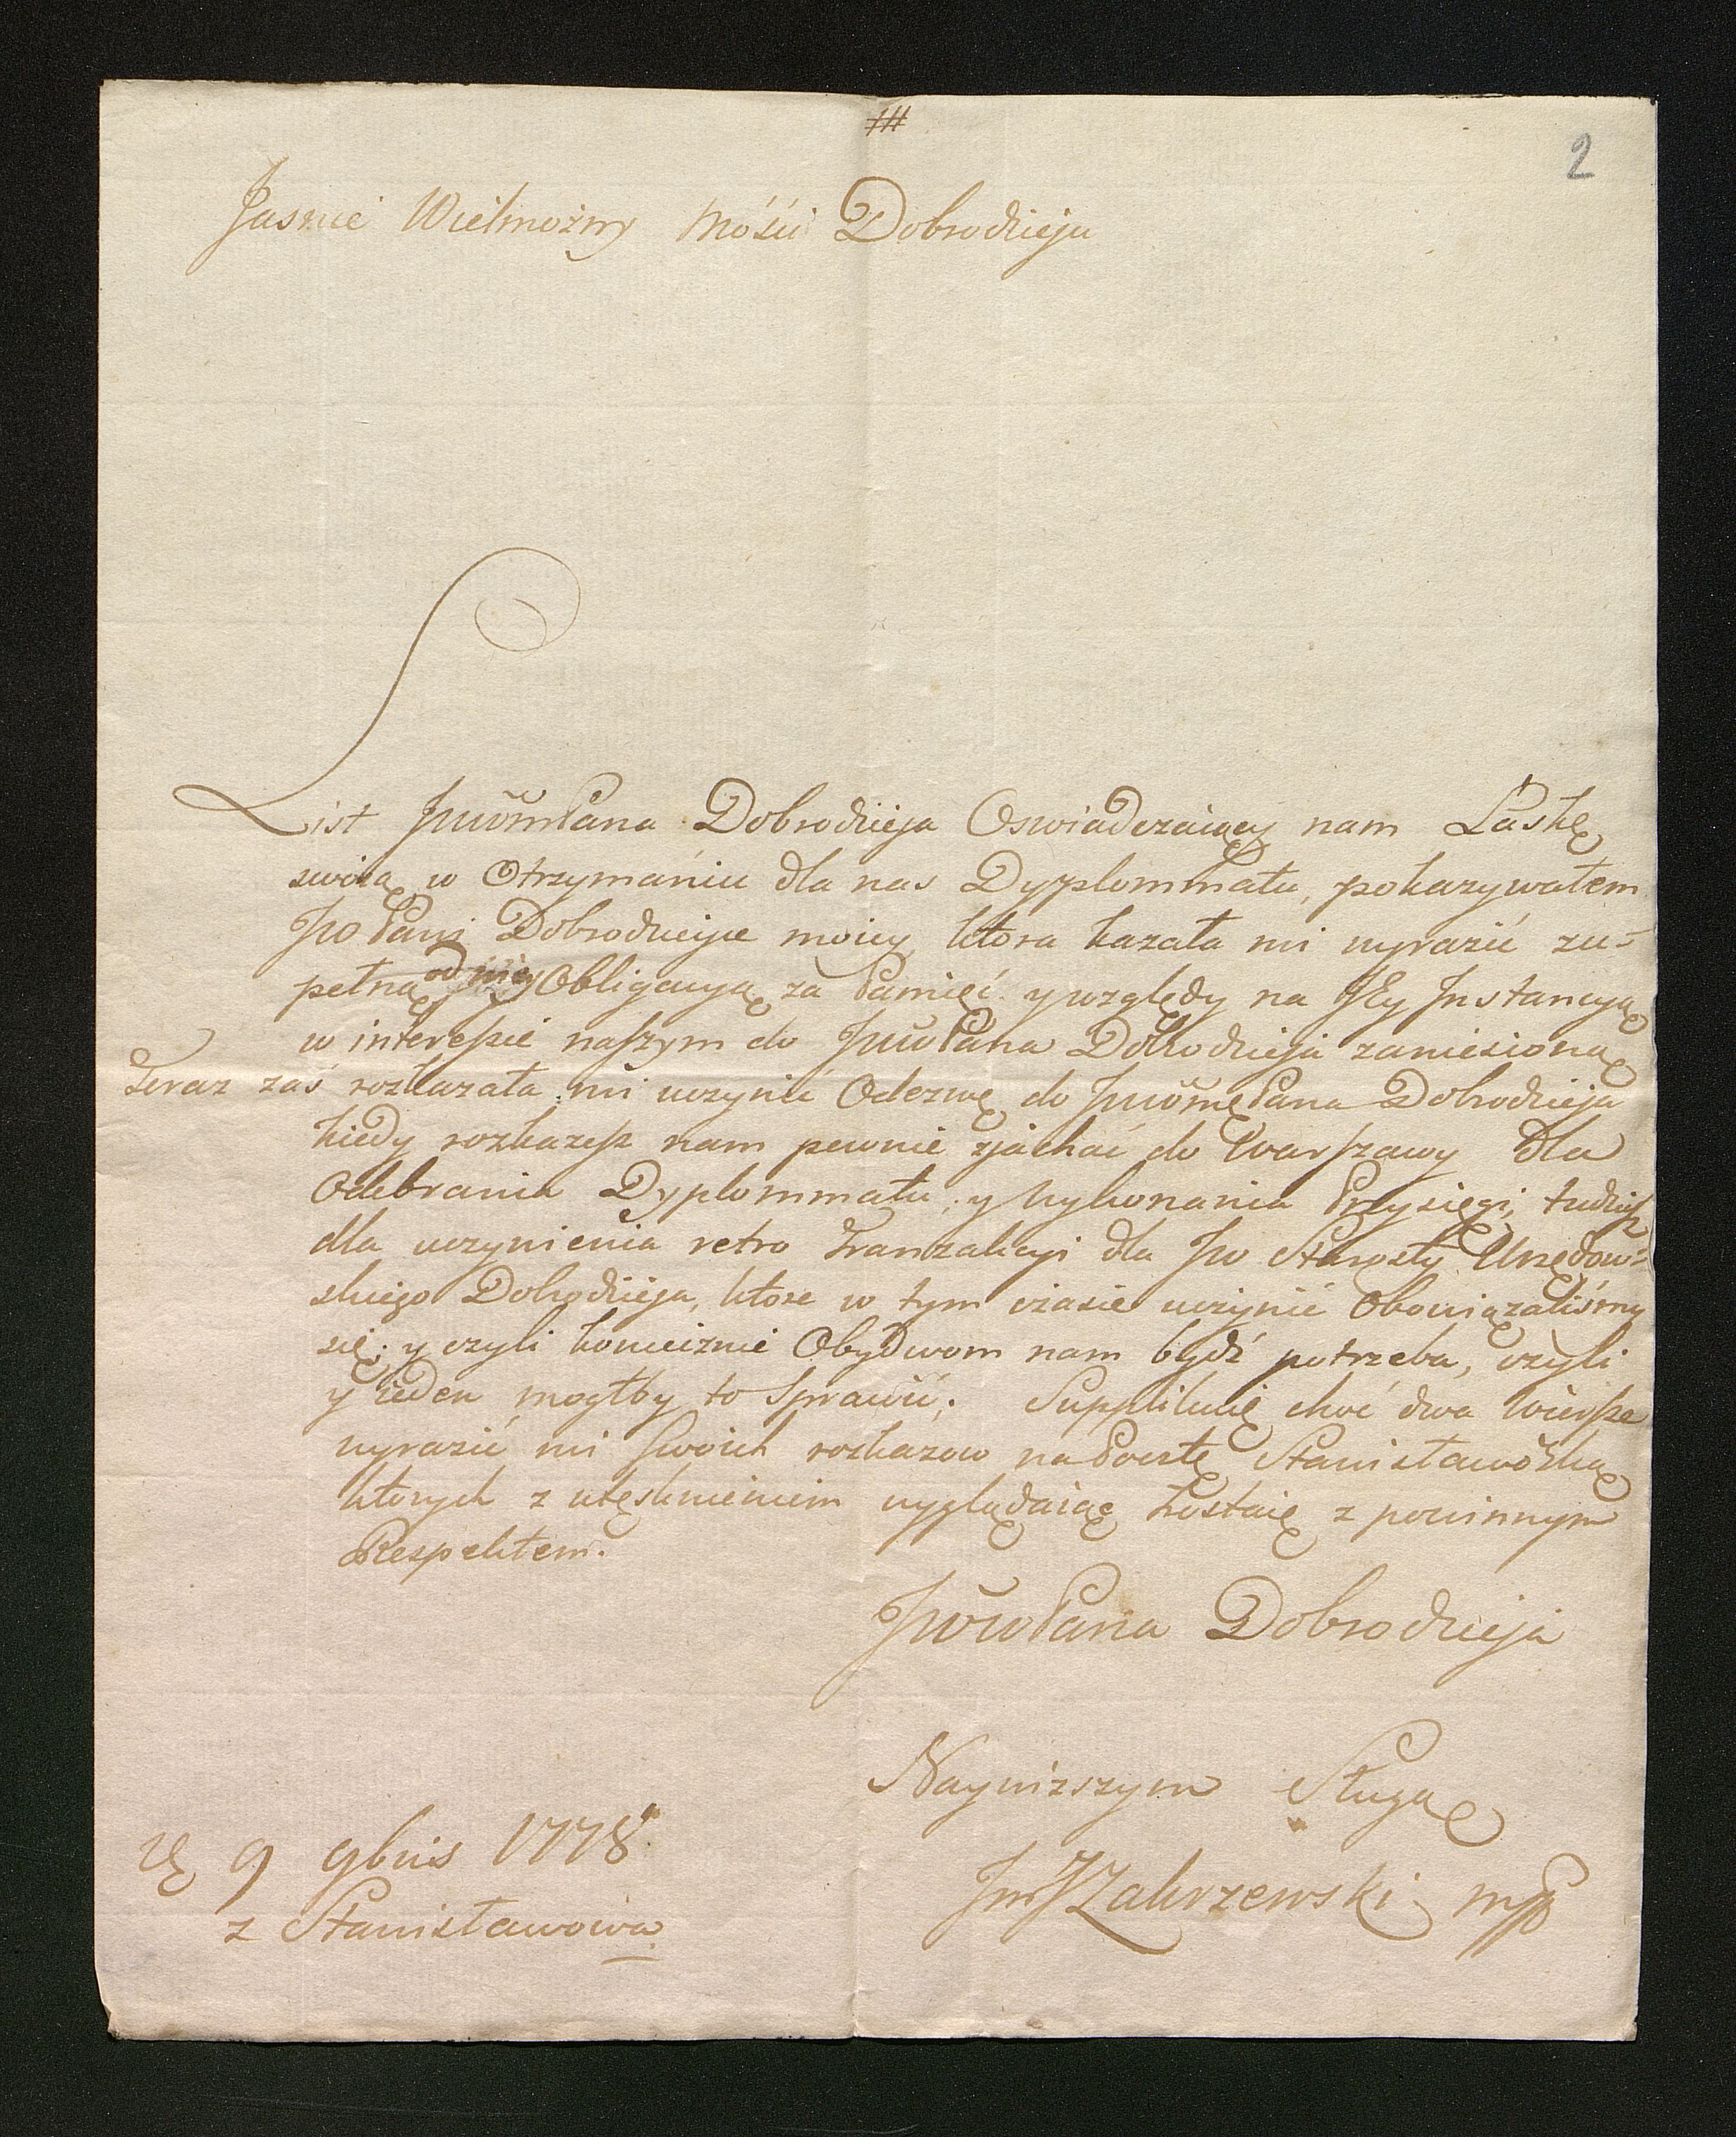 2
Jasnie Wielmożny Mości Dobrodzieju
List JwWmPana Dobrodzieja Oswiadczaiący nam Łaskę
swoią w Otrzymaniu dla nas Dyplommatu, pokazywałem
Jw Pani Dobrodziejce moiey ktora kazała mi wyrazić zu-
pełną od niey Obligacyą za Pamięć y względy na JEy Instancyą
w interessie naszym do JwwPana Dobrodzieja zaniesioną
Teraz zaś rozkazała mi uczynić Odezwę do JwWmPana Dobrodzieja
kiedy rozkazesz nam pewnie zjachać do Warszawy dla
Odebrania Dyplommatu, y wykonania Przysięgi, tudziesz
dla uczynienia retro Tranzakcyi dla Jw Starosty Urzędow-
skiego Dobrodzieja, ktore w tym czasie uczynić Obowiązaliśmy
się; y czyli koniecznie Obydwom nam bydź potrzeba, czyli
y ieden mogłby to Sprawić. Supplikuię choć dwa wiersze
wyrazić mi Swoich rozkazow na Pocztę Stanisławowską
ktorych z utęsknieniem wyglądaiąc zostaię z powinnym
Respektem.
JwwPana Dobrodzieja
Naynizszym Sługą
Zakrzewski mp
9 9bris 1778
z Stanisławowa